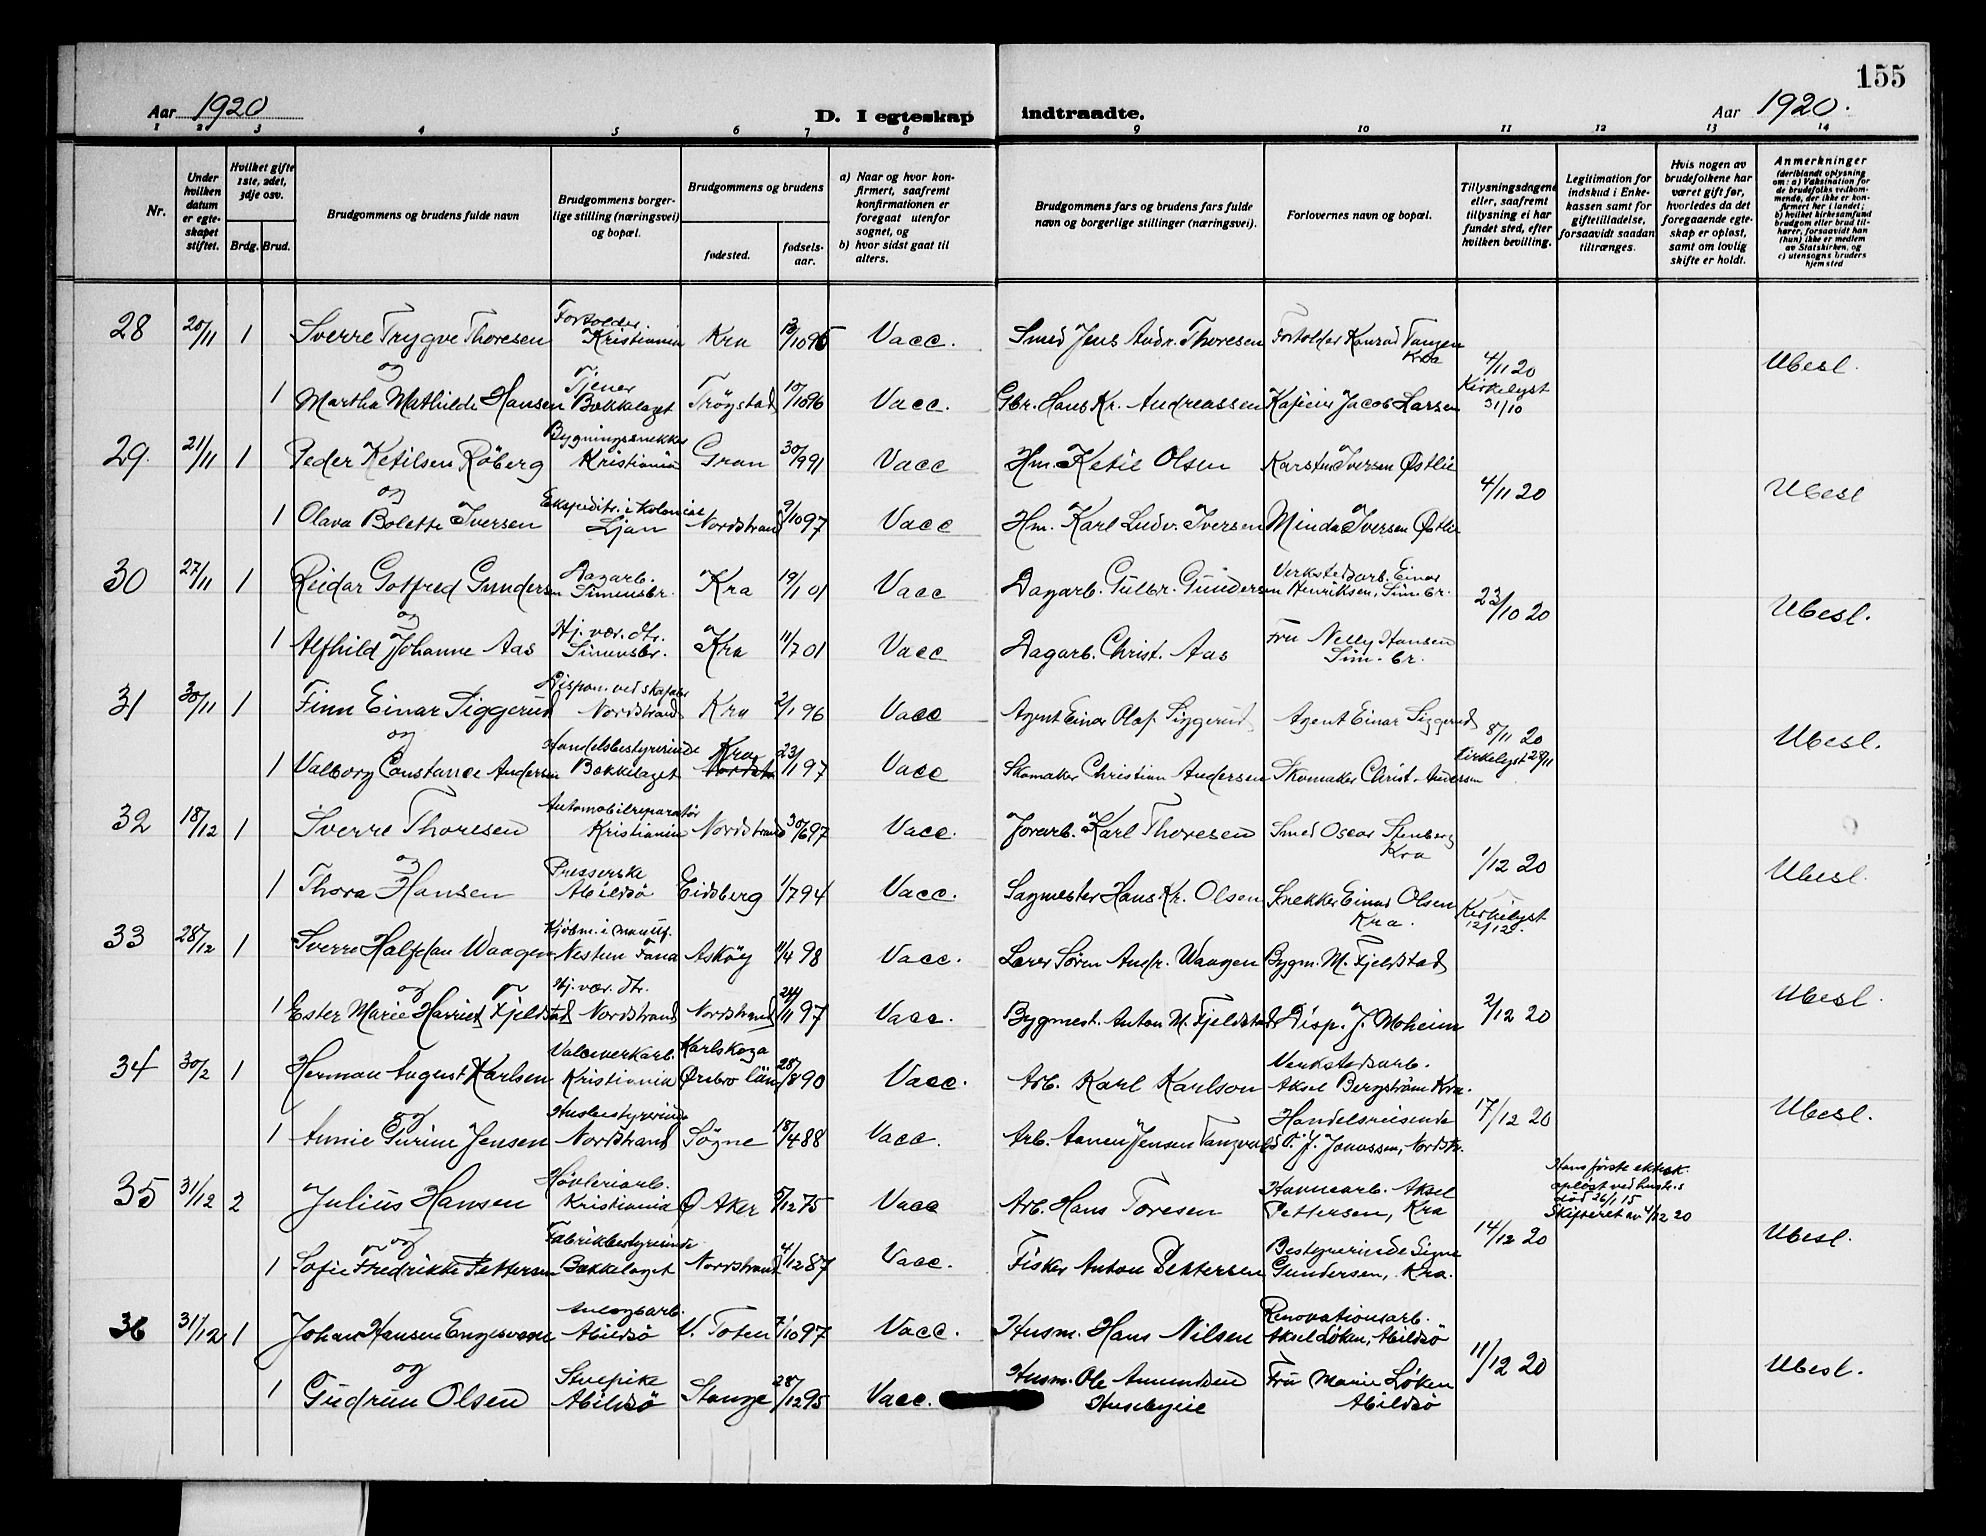 155
Aar 1920
D. I egteskap indtraadte.
Aar 1920.
1 2 3 4 5 6 7 8 9 10 11 12 13 14
Nr.
Under hvilken datum er egteskapet stiftet.
Hvilket gifte 1ste, 2det, 3dje osv.
Brdg. Brud.
Brudgommens og brudens fulde navn
Brudgommens borgerlige stilling (næringsvei) og bopæl.
Brudgommens og brudens
fødested.
fødselsaar.
a) Naar og hvor konfirmert, saafremt konfirmationen er foregaat utenfor sognet, og
b) hvor sidst gaat til alters.
Brudgommens fars og brudens fars fulde navn og borgerlige stillinger (næringsvei).
Forlovernes navn og bopæl.
Tillysningsdagene eller, saafremt tillysning ei har fundet sted, efter hvilken bevilling.
Legitimation for indskud i Enkekassen samt for giftetilladelse, forsaavidt saadan tiltrænges.
Hvis nogen av brudefolkene har været gift før, hvorledes da det foregaaende egteskap er opløst, samt om lovlig skifte er holdt.
Anmerkninger (deriblandt oplysning om: a) Vaksination for de brudefolks vedkommende, der ikke er konfirmert her i landet; b) hvilket kirkesamfund brudgom eller brud tilhører, forsaavidt han (hun) ikke er medlem av Statskirken, og c) utensogns bruders hjemsted
28 20/11 1 Sverre Trygve Thoresen Kristiania Kra Vacc. Smed Jens Andr. Thoresen Konrad Tangen Kra
og
4/11 20 Kirkelyst 31/10 Ubesl.
1 Martha Mathilde Hansen Tjener Bækkelaget Trögstad 10/10 96 Vacc. Gbr. Hans Kr. Andreassen Jacob Larsen
29. 21/11 1 Peder Ketilsen Röberg Bygningssnekker Kristiania Gran 30/9 91 Vacc Hm. Ketil Olsen Karsten Iversen Østlie
og
4/11 20 Ubesl
1 Olava Bolette Iversen Ekspeditr. i Kolonial Ljan Nordstrand 9/10 97 Vacc Hm. Karl Ludv. Iversen Minda Iversen Østlie
30 27/11 1 Reidar Gotfred Gundersen Dagarb. Simensbr. Kra 19/1 01 Vacc Dagarb. Gulbr. Gundersen Verkstedsarb. Einar Henriksen, Sim br.
og
23/10 20 Ubesl.
1 Alfhild Johanne Aas Hj. vær. dtr. Simensbr. Kra 11/7 01 Vacc Dagarb. Christ. Aas Fru Nelly Hansen Sim. br.
31 30/11 1 Finn Einar Siggerud Nordstrand Kra 2/1 96 Vacc Agent Einar Olaf Siggerud Agent Einar Siggerud
og
8/11 20 Kirkelyst 28/11 Ubesl.
1 Valborg Constance Andersen Handelsbestyrerinde Bækkelaget Kra 23/11 97 Vacc Skomaker Christian Andersen Skomaker Christ. Andersen
32 18/12 1 Sverre Thoresen Automobilreparatör Kristiania Nordstrand 30/6 97 Vacc. Jorarb. Karl Thoresen Smed Oscar Stenberg Kra
og
1/12 20 Ubesl.
1 Thora Hansen Presserske Abildsö Eidsberg 1/7 94 Vacc. Sagmester Hans Kr. Olsen Snekker Einar Olsen Kra.
Kirkelyst 12/12.
33 28/12 1 Sverre Halfdan Waagen Kjöbm. i manuf. Nestun Fana Asköy 11/4 98 Vacc. Lærer Sören Andr. Waagen Bygm. M. Fjeldstad
og
2/12 20 Ubesl.
1 Ester Marie Harriet Fjeldstad Hj. vær. dtr. Nordstrand Nordstrand 24/11 97 Vacc. Bygmest. Anton M. Fjeldstad Disp. J. Moheim
34 30/2 1 Herman August Karlsen Valseverkarb. Kristiania Karlskoga Örebro län 28/8 90 Vacc. Arb. Karl Karlson Verkstedsarb. Aksel Bergström Kra.
og
17/12 20 Ubesl.
1 Annie Gurine Jensen Husbestyrerinde Nordstrand Sögne 18/4 88 Vacc. Arb. Jensen Tangvald Handelsreisende J. Jonassen, Nordstr.
35 31/12 2 Julius Hansen Høvleriarb. Kristiania Ø Aker 5/12 75 Vacc Arb. Hans Toresen Havnearb. Aksel Pettersen, Kra
Hans förste ektesk. oplöst ved hustrus död 26/1 15 Skifteret av 4/12 20
og
14/12 20 Ubesl.
1 Sofie Fredrikke Pettersen Fabrikbestyrerinde Bækkelaget Nordstrand 4/12 87 Vacc. Fisker Anton Pettersen Bestyrerinde Signe Gundersen, Kra.
36 31/12 1 Johan Hansen Engesveen Anlegsarb. Abildsö V. Toten 7/10 97 Vacc. Husm. Hans Nilsen Renovationsarb. Aksel Løken, Abildsö
og
11/12 20 Ubesl.
1 Gudrun Olsen Stuepike Abildsö Stange 28/12 95 Vacc. Husm. Ole Amundsen Husebyeie Fru Marie Løken Abildsö